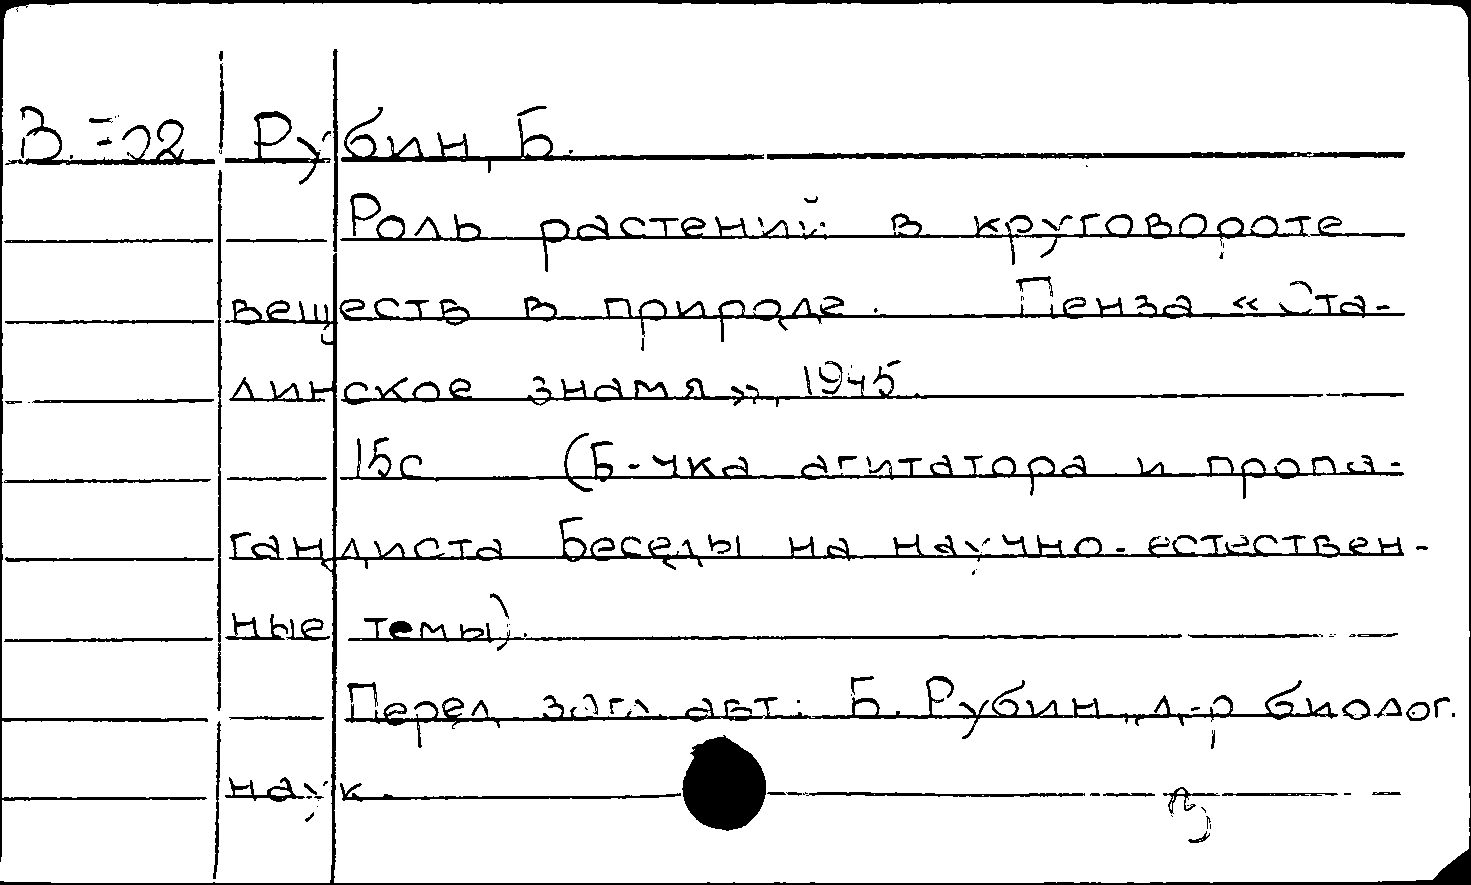 Рубин, Б.
Роль растений в круговороте
веществ в природе. Пенза «Ста-
линское знамя», 1945.
15с (Б-чка агитатора и пропа-
гандиста Беседы на научно-естествен-
ные темы).
Перед загл. авт.: Б. Рубин, д-р биолог.
наук.